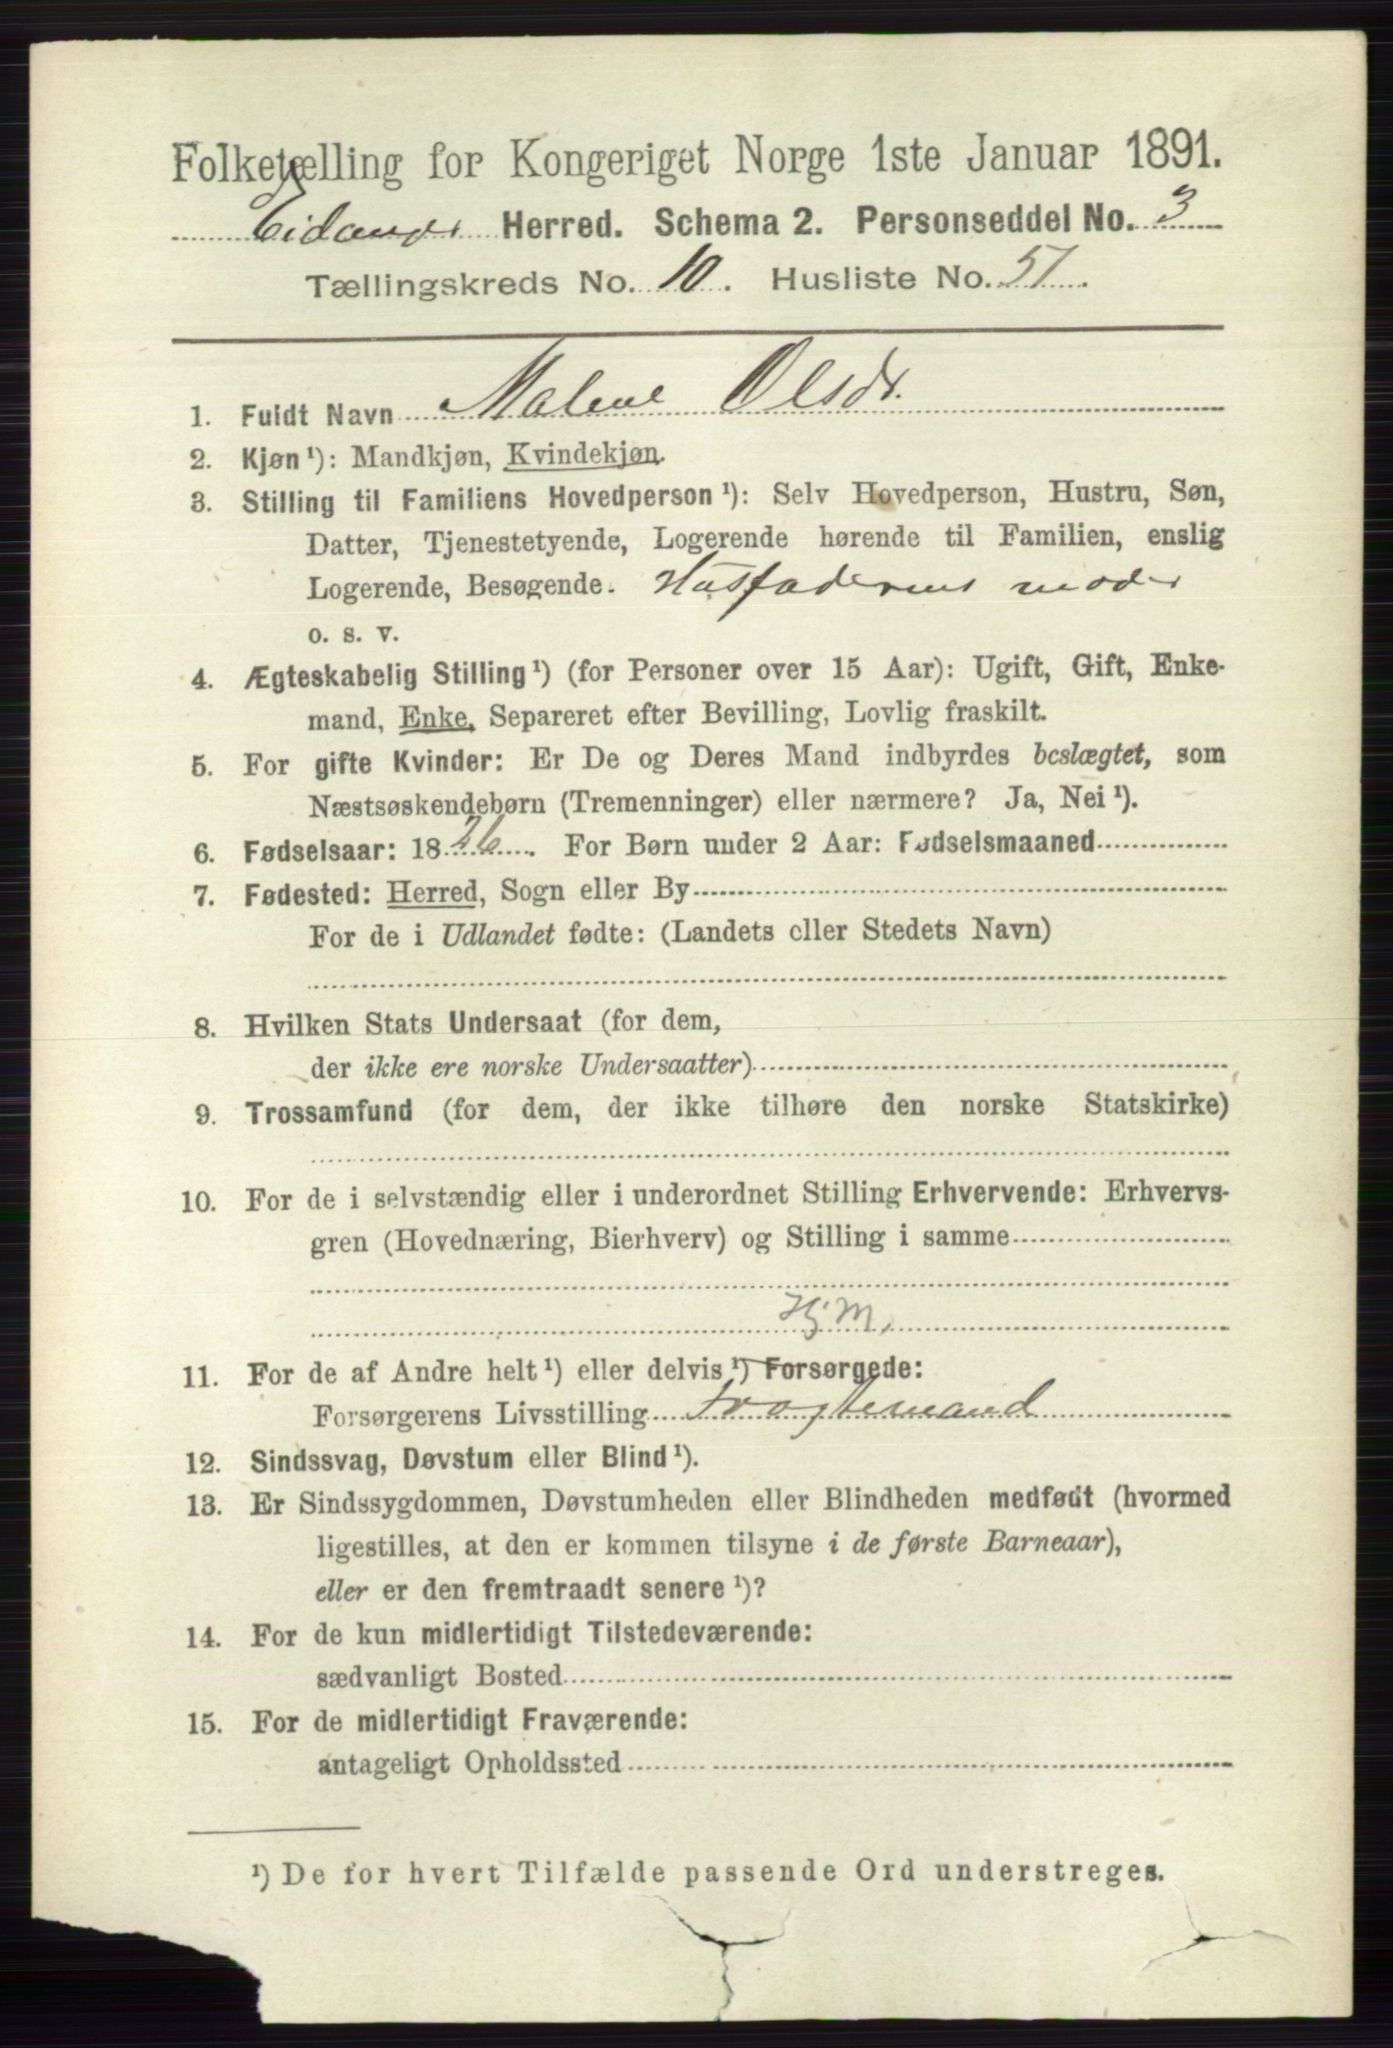 Folketælling for Kongeriget Norge 1ste Januar 1891.
Eidanger Herred. Schema 2. Personseddel No. 3
Tællingskreds No. 10. Husliste No. 51.
1. Fuldt Navn Malene Olsdr.
2. Kjøn ¹): Mandkjøn, Kvindekjøn.
3. Stilling til Familiens Hovedperson ¹): Selv Hovedperson, Hustru, Søn,
Datter, Tjenestetyende, Logerende hørende til Familien, enslig
Logerende, Besøgende. Husfaderens moder
o. s. v.
4. Ægteskabelig Stilling ¹) (for Personer over 15 Aar): Ugift, Gift, Enke-
mand, Enke, Separeret efter Bevilling, Lovlig fraskilt.
5. For gifte Kvinder: Er De og Deres Mand indbyrdes beslægtet, som
Næstsøskendebørn (Tremenninger) eller nærmere? Ja, Nei ¹).
6. Fødselsaar: 1826. For Børn under 2 Aar: Fødselsmaaned
7. Fødested: Herred, Sogn eller By
For de i Udlandet fødte: (Landets eller Stedets Navn)
8. Hvilken Stats Undersaat (for dem,
der ikke ere norske Undersaatter)
9. Trossamfund (for dem, der ikke tilhøre den norske Statskirke)
10. For de i selvstændig eller i underordnet Stilling Erhvervende: Erhvervs-
gren (Hovednæring, Bierhverv) og Stilling i samme
Hj. M.
11. For de af Andre helt ¹) eller delvis ¹) Forsørgede:
Forsørgerens Livsstilling Fragtemand
12. Sindssvag, Døvstum eller Blind ¹).
13. Er Sindssygdommen, Døvstumheden eller Blindheden medfødt (hvormed
ligestilles, at den er kommen tilsyne i de første Barneaar),
eller er den fremtraadt senere ¹)?
14. For de kun midlertidigt Tilstedeværende:
sædvanligt Bosted
15. For de midlertidigt Fraværende:
antageligt Opholdssted
¹) De for hvert Tilfælde passende Ord understreges.